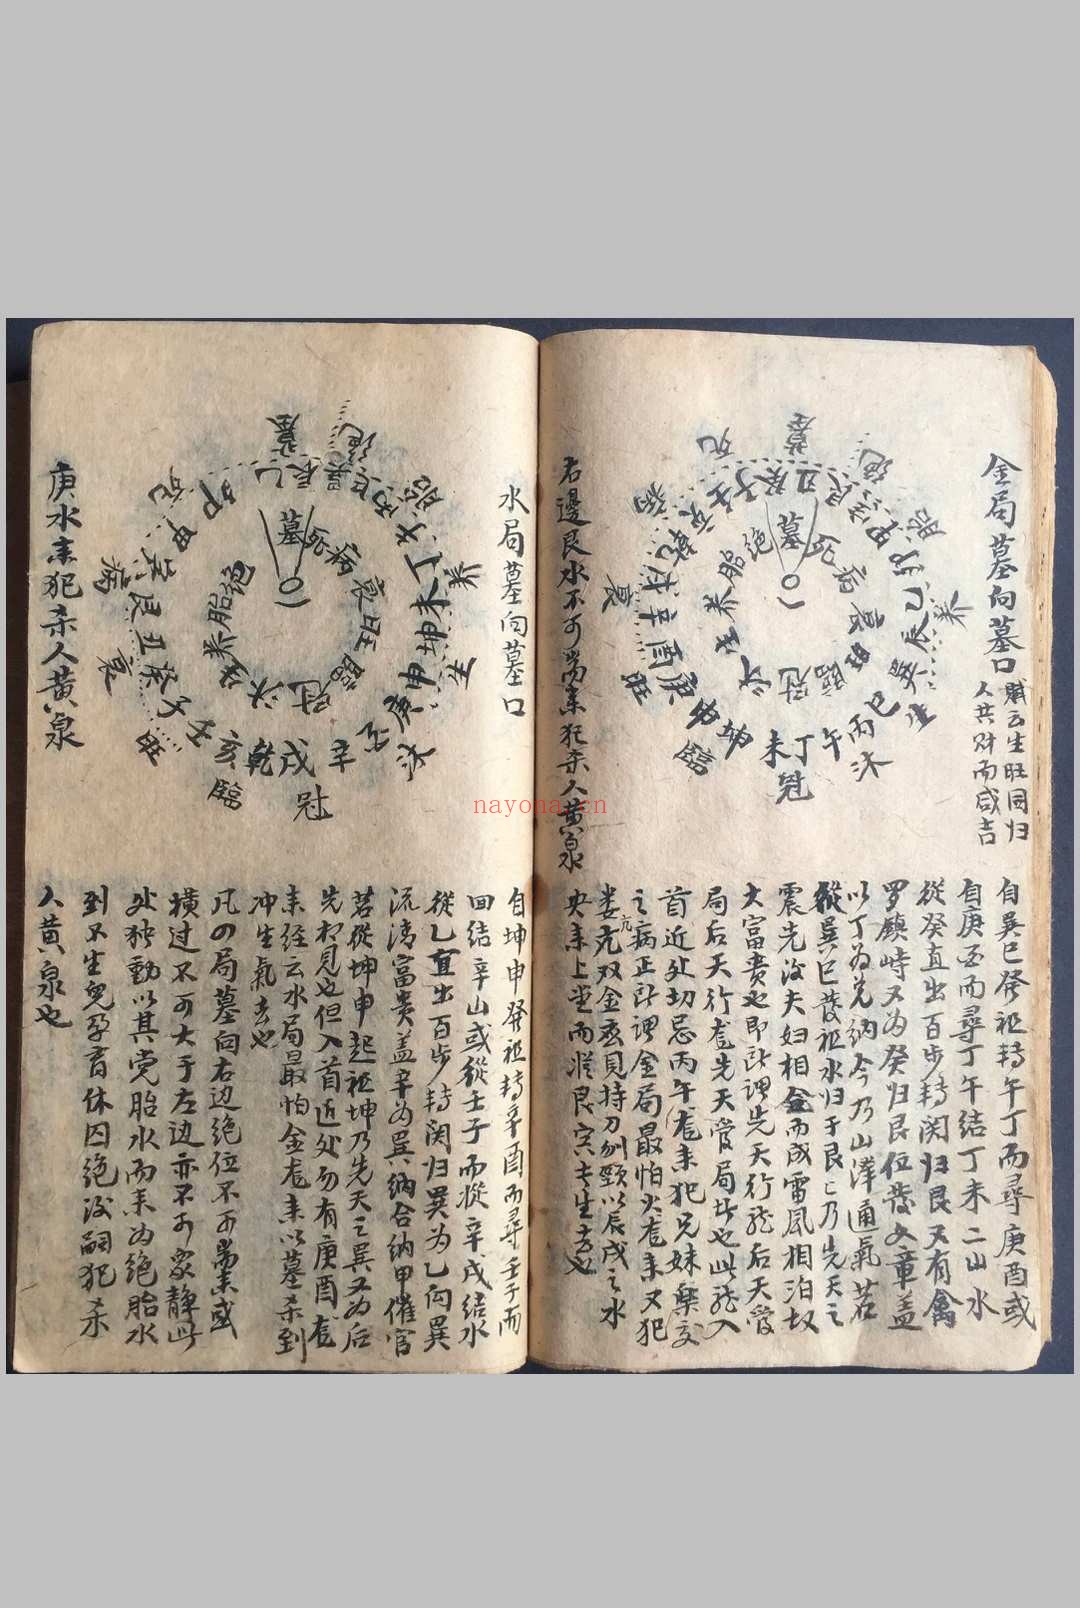 金局墓向墓口
賦云生旺同归
人共财而咸吉
自巽巳發祖轉午丁而尋庚酉或
自庚酉而尋丁午结丁未二山水
從癸直出百步轉闵归艮又有禽
罗鎮峙又为癸归艮位發文章盖
以丁为兑纳今乃山澤通氣若
縱巽巳發祖水归于艮艮乃先天之
震先没夫妇相金而成雷風相泊故
大富贵也即此谓先天行龙后天管
局后天行龙先天管局步也此龙入
首近处切忌丙午龙来犯兄妹
之病正此谓金局最怕火龙来又犯
娄亢双金 持刀 頸以辰戌之水
央来上堂而 艮 去生去也
右邊艮水不可当来犯杀人黄泉
墓
绝
胎
养
生
沐
冠
臨
旺
衰
病
死
未丁午丙巳
坤申庚酉辛戌乾亥
nayona.cn
水局墓向墓口
自坤申發祖轉辛酉而尋壬子而
回结辛山或從壬子而從辛戌结水
從乙直出百步轉闵归巽为乙向巽
流清富贵盖辛为巽纳合纳甲催官
若從坤申起祖坤乃先天之巽又为后
先相見也但入首近处勿有庚酉龙
来经云水局最怕金龙来以墓杀到
冲生氣去也
凡四局墓向右边绝位不可当来或
横过不可大于左边亦不可众静此
处独動以其党胎水而来为绝胎水
到不生兒孕育休囚绝没嗣犯杀
人黄泉也
墓
绝
胎
养
生
沐
冠
臨
旺
衰
病
死
丁未坤申庚酉辛戌乾亥壬子癸丑艮寅甲卯乙辰
庚水来犯杀人黄泉